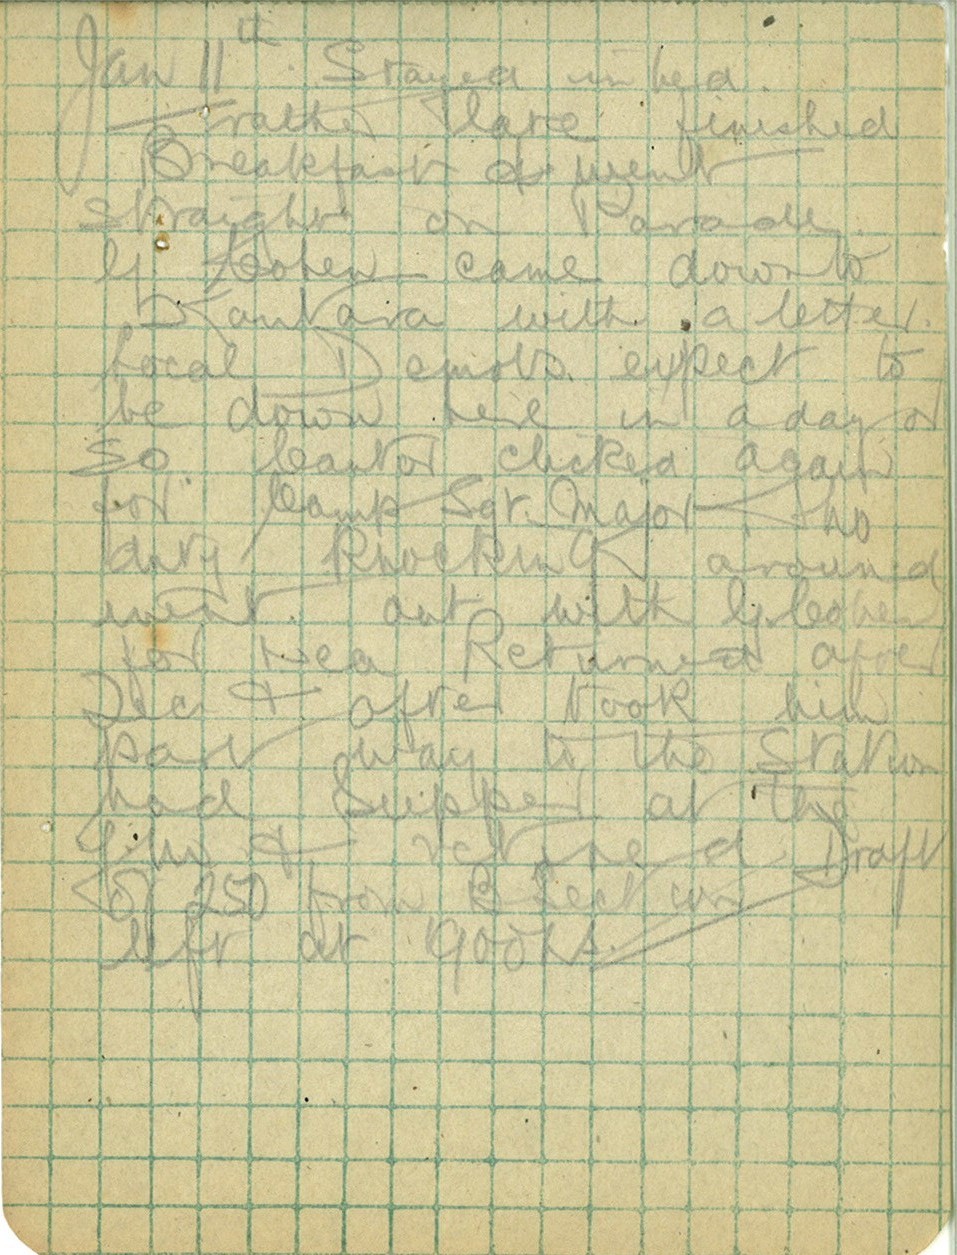 Jan 11th. Stayed in bed.
rather late finished
Breakfast & went
straight on Parade.
G Cohen came down to
Kantara with a letter.
Local Demobs. expect to
be down here in a day or
so Cantor clicked again
for Camp Sgt. Major no
duty Knocking around
went out with G. Cohen
for tea Returned after
& after took him
part way to the Station
had Supper at the
& returned Draft
of 250 from B Section
left at 1900hrs.